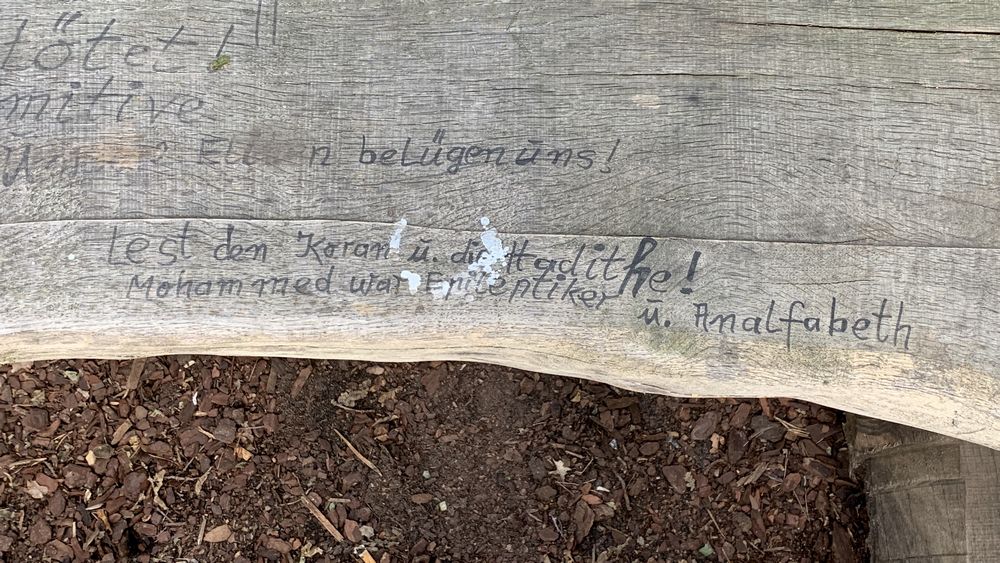 tötet!
mitive
n belügen uns!
Lest den Koran ū. die Hadithe!
Mohammed war Epileptiker
ū. Analfabeth